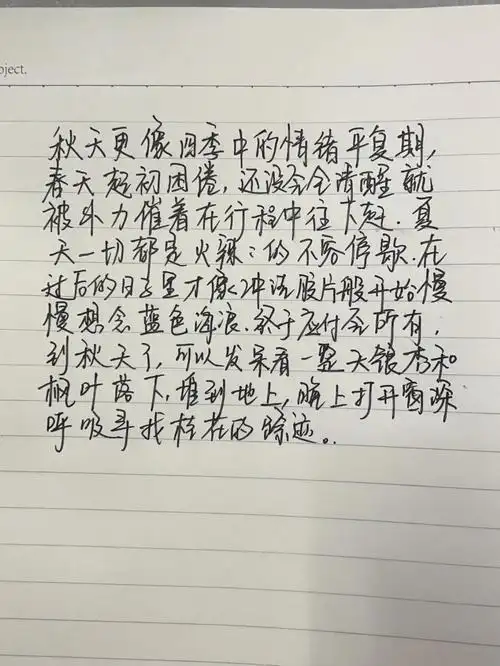 oject.
秋天更像四季中的情绪平复期,
春天起初困倦,还没完全清醒就
被外力催着在行程中往下赶.夏
天一切都是火辣:的不容停歇.在
过后的日子里才像冲洗胶片般开始慢
慢想念蓝色海浪.终于应付完所有,
到秋天了,可以发呆看一整天银杏和
枫叶落下,堆到地上,晚上打开窗深
呼吸寻找桂花的踪迹。